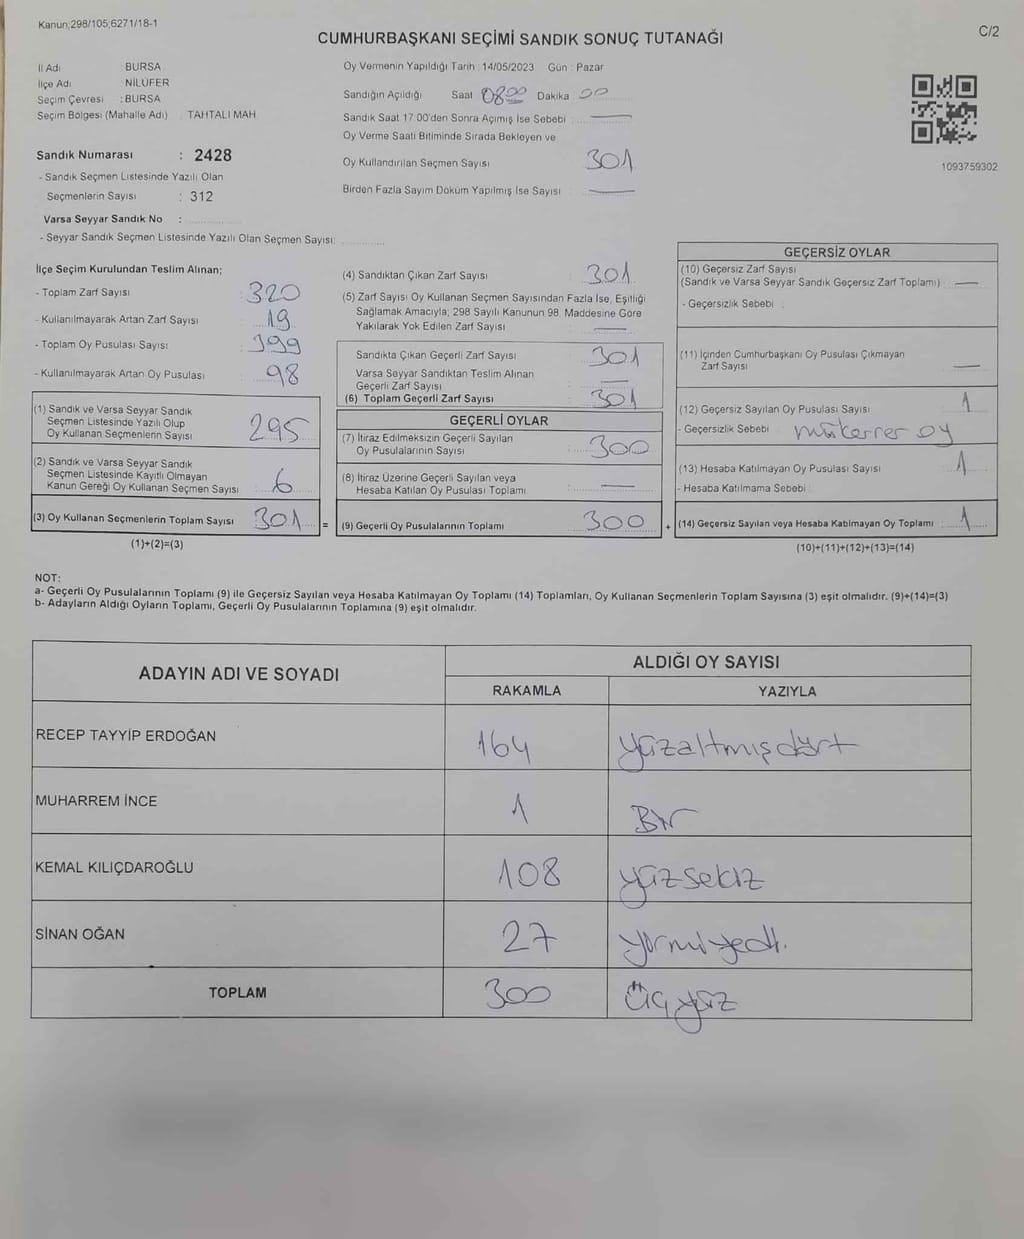 Kanun;298/105;6271/18-1
C/2
CUMHURBAŞKANI SEÇİMİ SANDIK SONUÇ TUTANAĞI
İl Adı : BURSA
İlçe Adı : NİLÜFER
Seçim Çevresi : BURSA
Seçim Bölgesi (Mahalle Adı) : TAHTALI MAH
Sandık Numarası : 2428
- Sandık Seçmen Listesinde Yazılı Olan
Seçmenlerin Sayısı : 312
Varsa Seyyar Sandık No :
- Seyyar Sandık Seçmen Listesinde Yazılı Olan Seçmen Sayısı:
Oy Vermenin Yapıldığı Tarih : 14/05/2023 Gün : Pazar
Sandığın Açıldığı Saat 08:00 Dakika 00
Sandık Saat 17.00'den Sonra Açımış İse Sebebi :
Oy Verme Saati Bitiminde Sırada Bekleyen ve
Oy Kullandırılan Seçmen Sayısı 301
Birden Fazla Sayım Döküm Yapılmış İse Sayısı :
1093759302
İlçe Seçim Kurulundan Teslim Alınan;
- Toplam Zarf Sayısı : 320
- Kullanılmayarak Artan Zarf Sayısı : 19
- Toplam Oy Pusulası Sayısı : 399
- Kullanılmayarak Artan Oy Pusulası : 98
(1) Sandık ve Varsa Seyyar Sandık
Seçmen Listesinde Yazılı Olup
Oy Kullanan Seçmenlerin Sayısı : 295
(2) Sandık ve Varsa Seyyar Sandık
Seçmen Listesinde Kayıtlı Olmayan
Kanun Gereği Oy Kullanan Seçmen Sayısı : 6
(3) Oy Kullanan Seçmenlerin Toplam Sayısı : 301 =
(1)+(2)=(3)
(4) Sandıktan Çıkan Zarf Sayısı : 301
(5) Zarf Sayısı Oy Kullanan Seçmen Sayısından Fazla İse, Eşitliği
Sağlamak Amacıyla; 298 Sayılı Kanunun 98. Maddesine Göre
Yakılarak Yok Edilen Zarf Sayısı :
Sandıkta Çıkan Geçerli Zarf Sayısı : 301
Varsa Seyyar Sandıktan Teslim Alınan
Geçerli Zarf Sayısı :
(6) Toplam Geçerli Zarf Sayısı : 301
GEÇERLİ OYLAR
(7) İtiraz Edilmeksizin Geçerli Sayılan
Oy Pusulalarının Sayısı : 300
(8) İtiraz Üzerine Geçerli Sayılan veya
Hesaba Katılan Oy Pusulası Toplamı :
(9) Geçerli Oy Pusulalarının Toplamı : 300 +
GEÇERSİZ OYLAR
(10) Geçersiz Zarf Sayısı
(Sandık ve Varsa Seyyar Sandık Geçersiz Zarf Toplamı) :
- Geçersizlik Sebebi :
(11) İçinden Cumhurbaşkanı Oy Pusulası Çıkmayan
Zarf Sayısı :
(12) Geçersiz Sayılan Oy Pusulası Sayısı : 1
- Geçersizlik Sebebi : mükerrer oy
(13) Hesaba Katılmayan Oy Pusulası Sayısı : 1
- Hesaba Katılmama Sebebi :
(14) Geçersiz Sayılan veya Hesaba Katılmayan Oy Toplamı : 1
(10)+(11)+(12)+(13)=(14)
NOT:
a- Geçerli Oy Pusulalarının Toplamı (9) ile Geçersiz Sayılan veya Hesaba Katılmayan Oy Toplamı (14) Toplamları, Oy Kullanan Seçmenlerin Toplam Sayısına (3) eşit olmalıdır. (9)+(14)=(3)
b- Adayların Aldığı Oyların Toplamı, Geçerli Oy Pusulalarının Toplamına (9) eşit olmalıdır.
ADAYIN ADI VE SOYADI
ALDIĞI OY SAYISI
RAKAMLA YAZIYLA
RECEP TAYYİP ERDOĞAN 164 yüzaltmışdört
MUHARREM İNCE 1 Bir
KEMAL KILIÇDAROĞLU 108 yüzsekiz
SİNAN OĞAN 27 yirmiyedi.
TOPLAM 300 Üçyüz